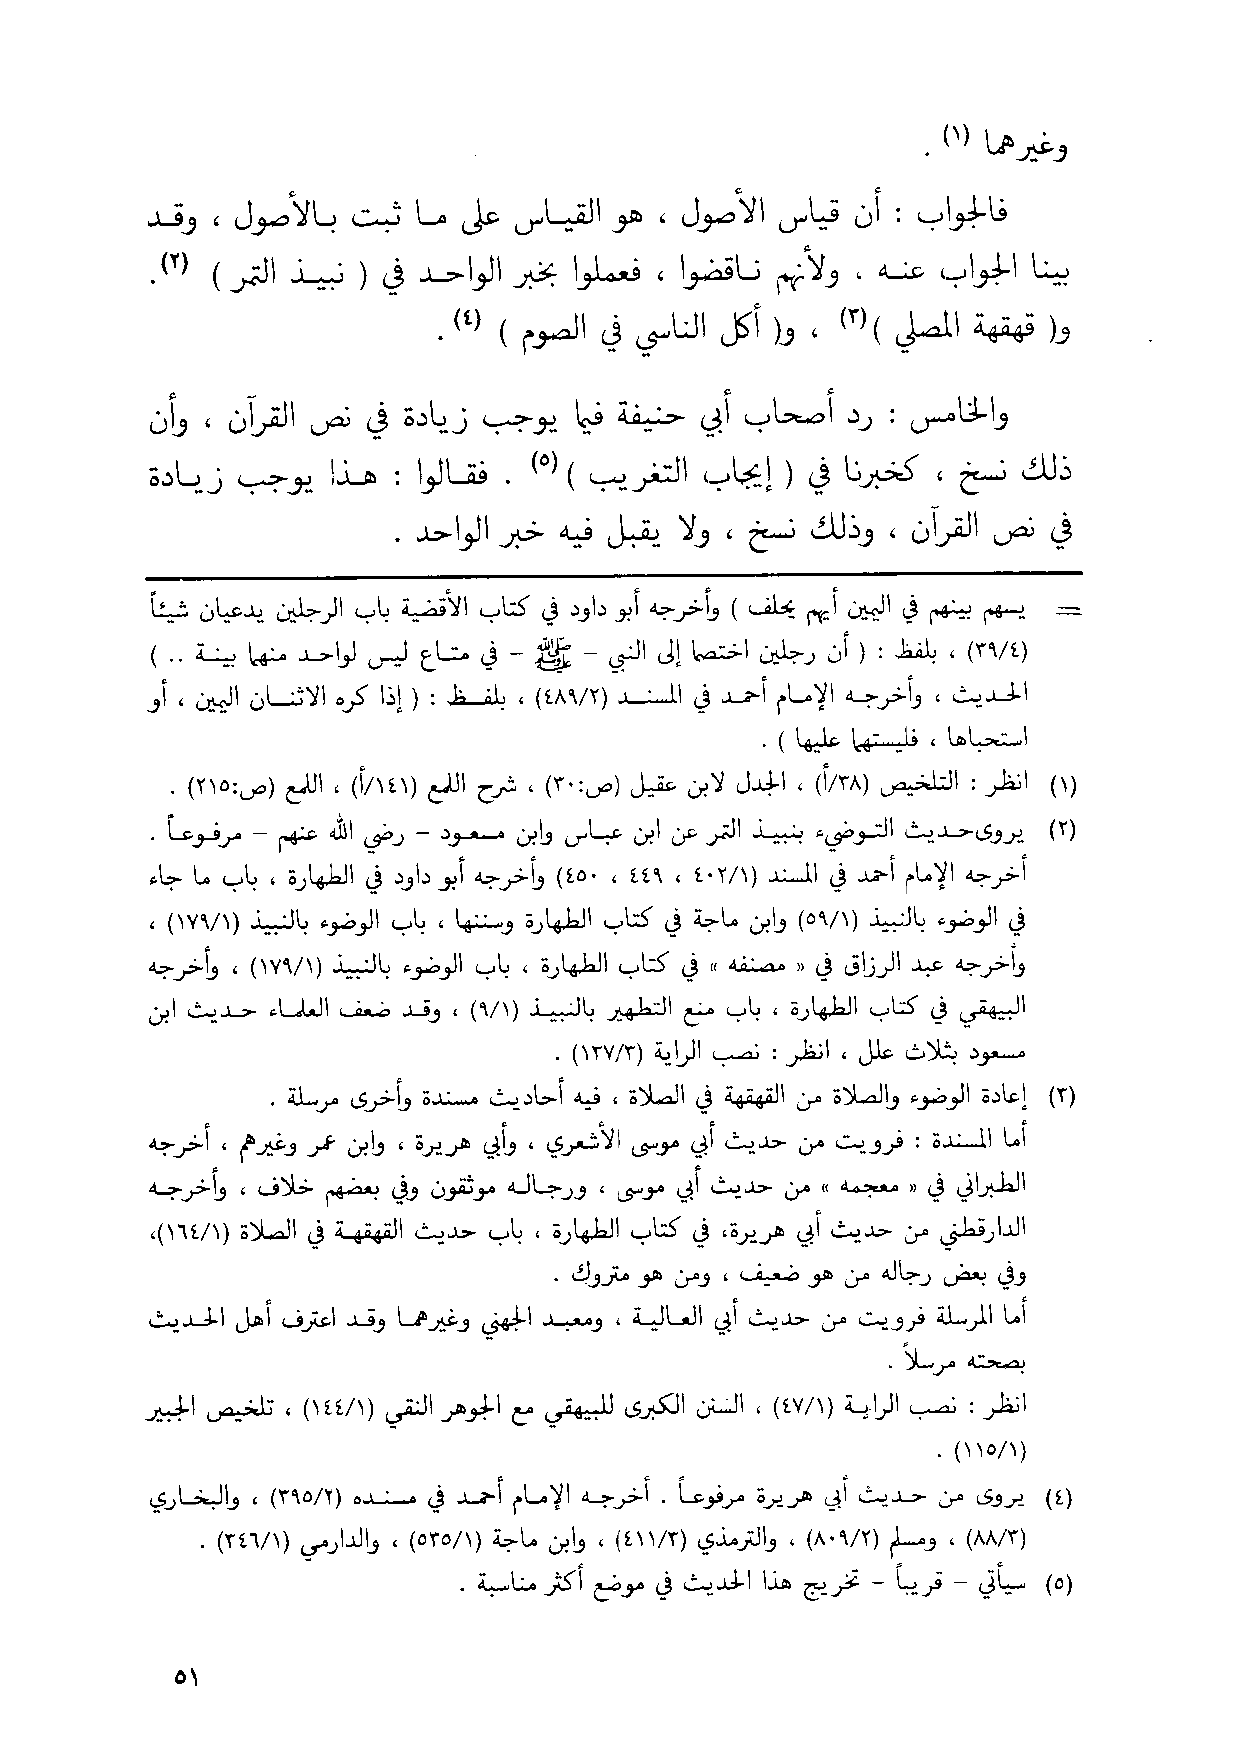 وغيرهما (١) .
فالجواب : أن قياس الأصول ، هو القياس على ما ثبت بالأصول ، وقد
بينا الجواب عنه . ولأنهم ناقضوا ، فعملوا بخبر الواحد في ( نبيذ التمر ) (٢).
و( قهقهة المصلي )(٣) ، و( أكل الناسي في الصوم ) (٤) .
والخامس : رد أصحاب أبي حنيفة فيما يوجب زيادة في نص القرآن ، وأن
ذلك نسخ ، كخبرنا في ( إيجاب التغريب )(٥) . فقالوا : هذا يوجب زيادة
في نص القرآن ، وذلك نسخ ، ولا يقبل فيه خبر الواحد .
= يسهم بينهم في اليمين أيهم يحلف ) وأخرجه أبو داود في كتاب الأقضية باب الرجلين يدعيان شيئاً
(٣٩/٤) ، بلفظ : ( أن رجلين اختصما إلى النبي - ﷺ - في متاع ليس لواحد منهما بينة .. )
الحديث ، وأخرجه الإمام أحمد في المسند (٤٨٩/٢) ، بلفظ : ( إذا كره الاثنان اليمين ، أو
استحباها ، فليستهما عليها ) .
(١) انظر : التلخيص (٣٨/أ) ، الجدل لابن عقيل (ص:٣٠) ، شرح اللمع (١٤١/أ) ، اللمع (ص:٢١٥) .
(٢) يروى حديث التوضيء بنبيذ التمر عن ابن عباس وابن مسعود - رضي الله عنهم - مرفوعاً .
أخرجه الإمام أحمد في المسند (٤٠٢/١ ، ٤٤٩ ، ٤٥٠) وأخرجه أبو داود في الطهارة ، باب ما جاء
في الوضوء بالنبيذ (٥٩/١) وابن ماجة في كتاب الطهارة وسننها ، باب الوضوء بالنبيذ (١٧٩/١) ،
وأخرجه عبد الرزاق في « مصنفه » في كتاب الطهارة ، باب الوضوء بالنبيذ (١٧٩/١) ، وأخرجه
البيهقي في كتاب الطهارة ، باب منع التطهير بالنبيذ (٩/١) ، وقد ضعف العلماء حديث ابن
مسعود بثلاث علل ، انظر : نصب الراية (١٣٧/٣) .
(٣) إعادة الوضوء والصلاة من القهقهة في الصلاة ، فيه أحاديث مسندة وأخرى مرسلة .
أما المسندة : فرويت من حديث أبي موسى الأشعري ، وأبي هريرة ، وابن عمر وغيرهم ، أخرجه
الطبراني في « معجمه » من حديث أبي موسى ، ورجاله موثقون وفي بعضهم خلاف ، وأخرجه
الدارقطني من حديث أبي هريرة، في كتاب الطهارة ، باب حديث القهقهة في الصلاة (١٦٤/١)،
وفي بعض رجاله من هو ضعيف ، ومن هو متروك .
أما المرسلة فرويت من حديث أبي العالية ، ومعبد الجهني وغيرهما وقد اعترف أهل الحديث
بصحته مرسلاً .
انظر : نصب الراية (٤٧/١) ، السنن الكبرى للبيهقي مع الجوهر النقي (١٤٤/١) ، تلخيص الحبير
(١١٥/١) .
(٤) يروى من حديث أبي هريرة مرفوعاً . أخرجه الإمام أحمد في مسنده (٣٩٥/٢) ، والبخاري
(٨٨/٣) ، ومسلم (٨٠٩/٢) ، والترمذي (٤١١/٣) ، وابن ماجة (٥٣٥/١) ، والدارمي (٣٤٦/١) .
(٥) سيأتي - قريباً - تخريج هذا الحديث في موضع أكثر مناسبة .
٥١